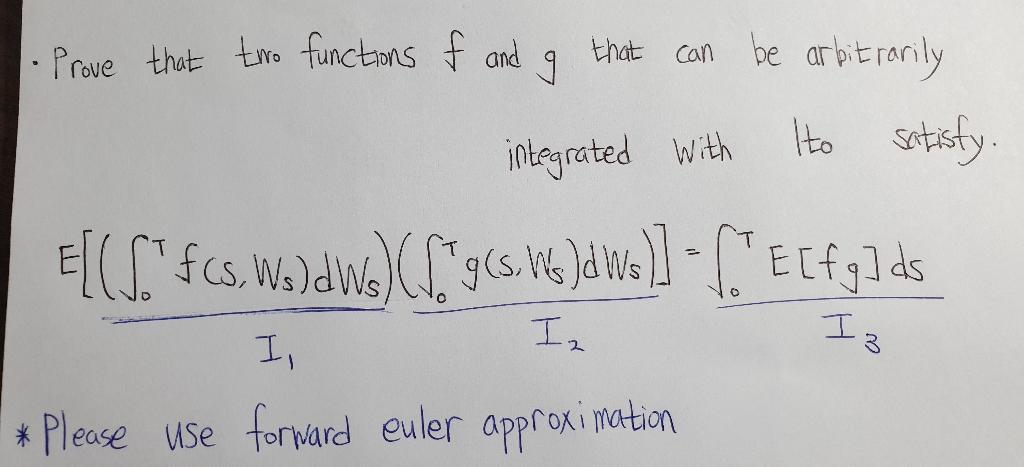 · Prove that two functions f and g that can be arbitrarily
integrated with Ito satisfy.
E[(∫₀ᵀ f(s, Wₛ)dWₛ)(∫₀ᵀ g(s, Wₛ)dWₛ)] = ∫₀ᵀ E[fg]ds
I₁ I₂ I₃
* Please use forward euler approximation